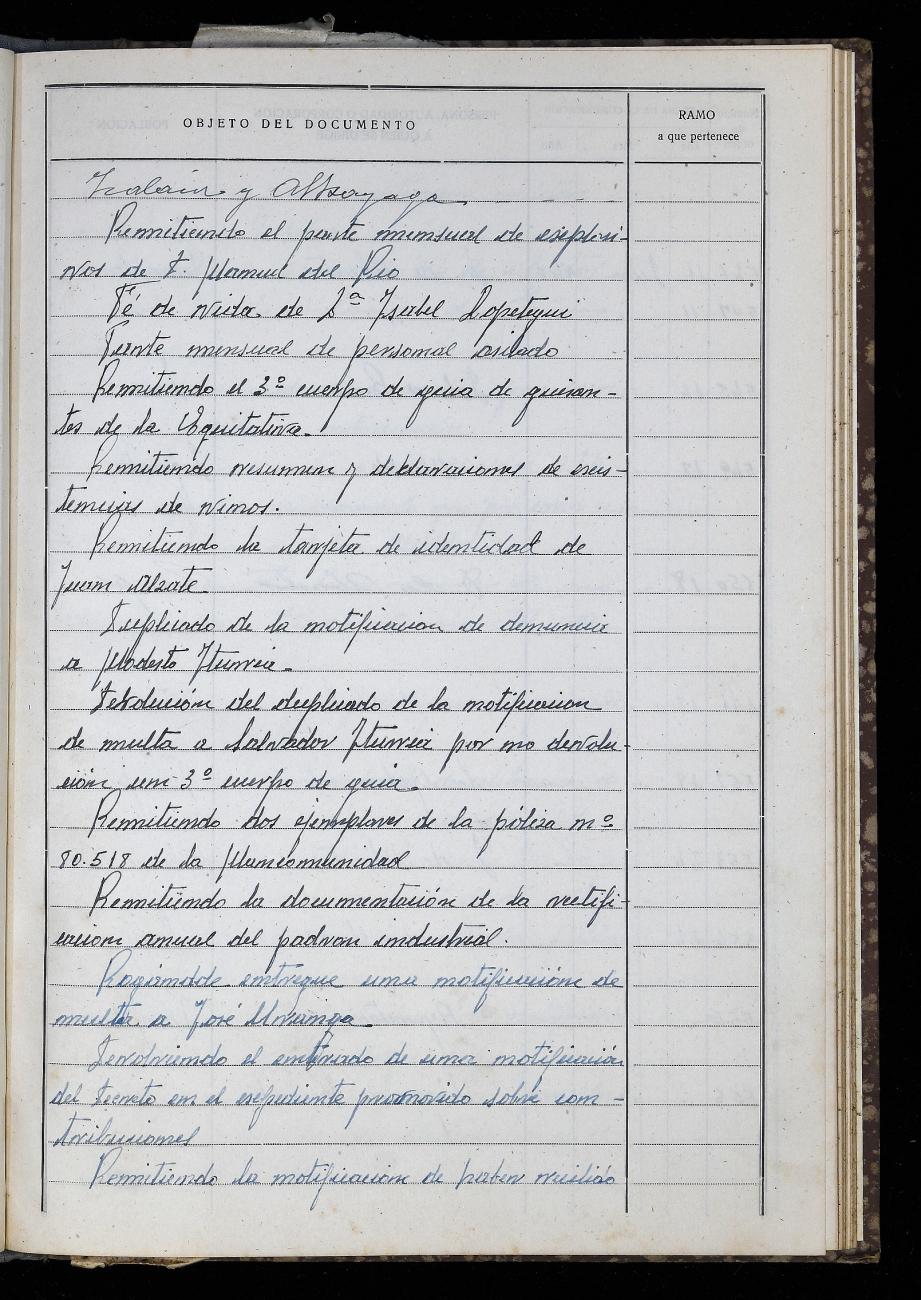 OBJETO DEL DOCUMENTO
RAMO
a que pertenece
y Altsayaga
Remitiendo el parte mensual de explosi-
vos de D. Manuel del Rio
Fé de vida de Dª Ysabel Lopetegui
Parte mensual de personal asilado
Remitiendo el 3º cuerpo de guia de guisan-
tes de la Equitativa.
Remitiendo resumen y deklaraciones de exis-
tencias de vinos.
Remitiendo la tarjeta de identidad de
Juan Alzate
Duplicado de la notificacion de denuncia
a Modesto Yturria.
Devolución del duplicado de la notificacion
de multa a Salvador Yturria por no devolu-
ción un 3º cuerpo de guia.
Remitiendo dos ejemplares de la póliza nº
80.518 de la Mancomunidad
Remitiendo la documentación de la rectifi-
cacion anual del padron industrial.
Rogándole entregue una notificación de
multa a José Uranga
Devolviendo el enterado de una notificación
del Decreto en el expediente promovido sobre con-
tribuciones
Remitiendo la notificacion de haber recibido